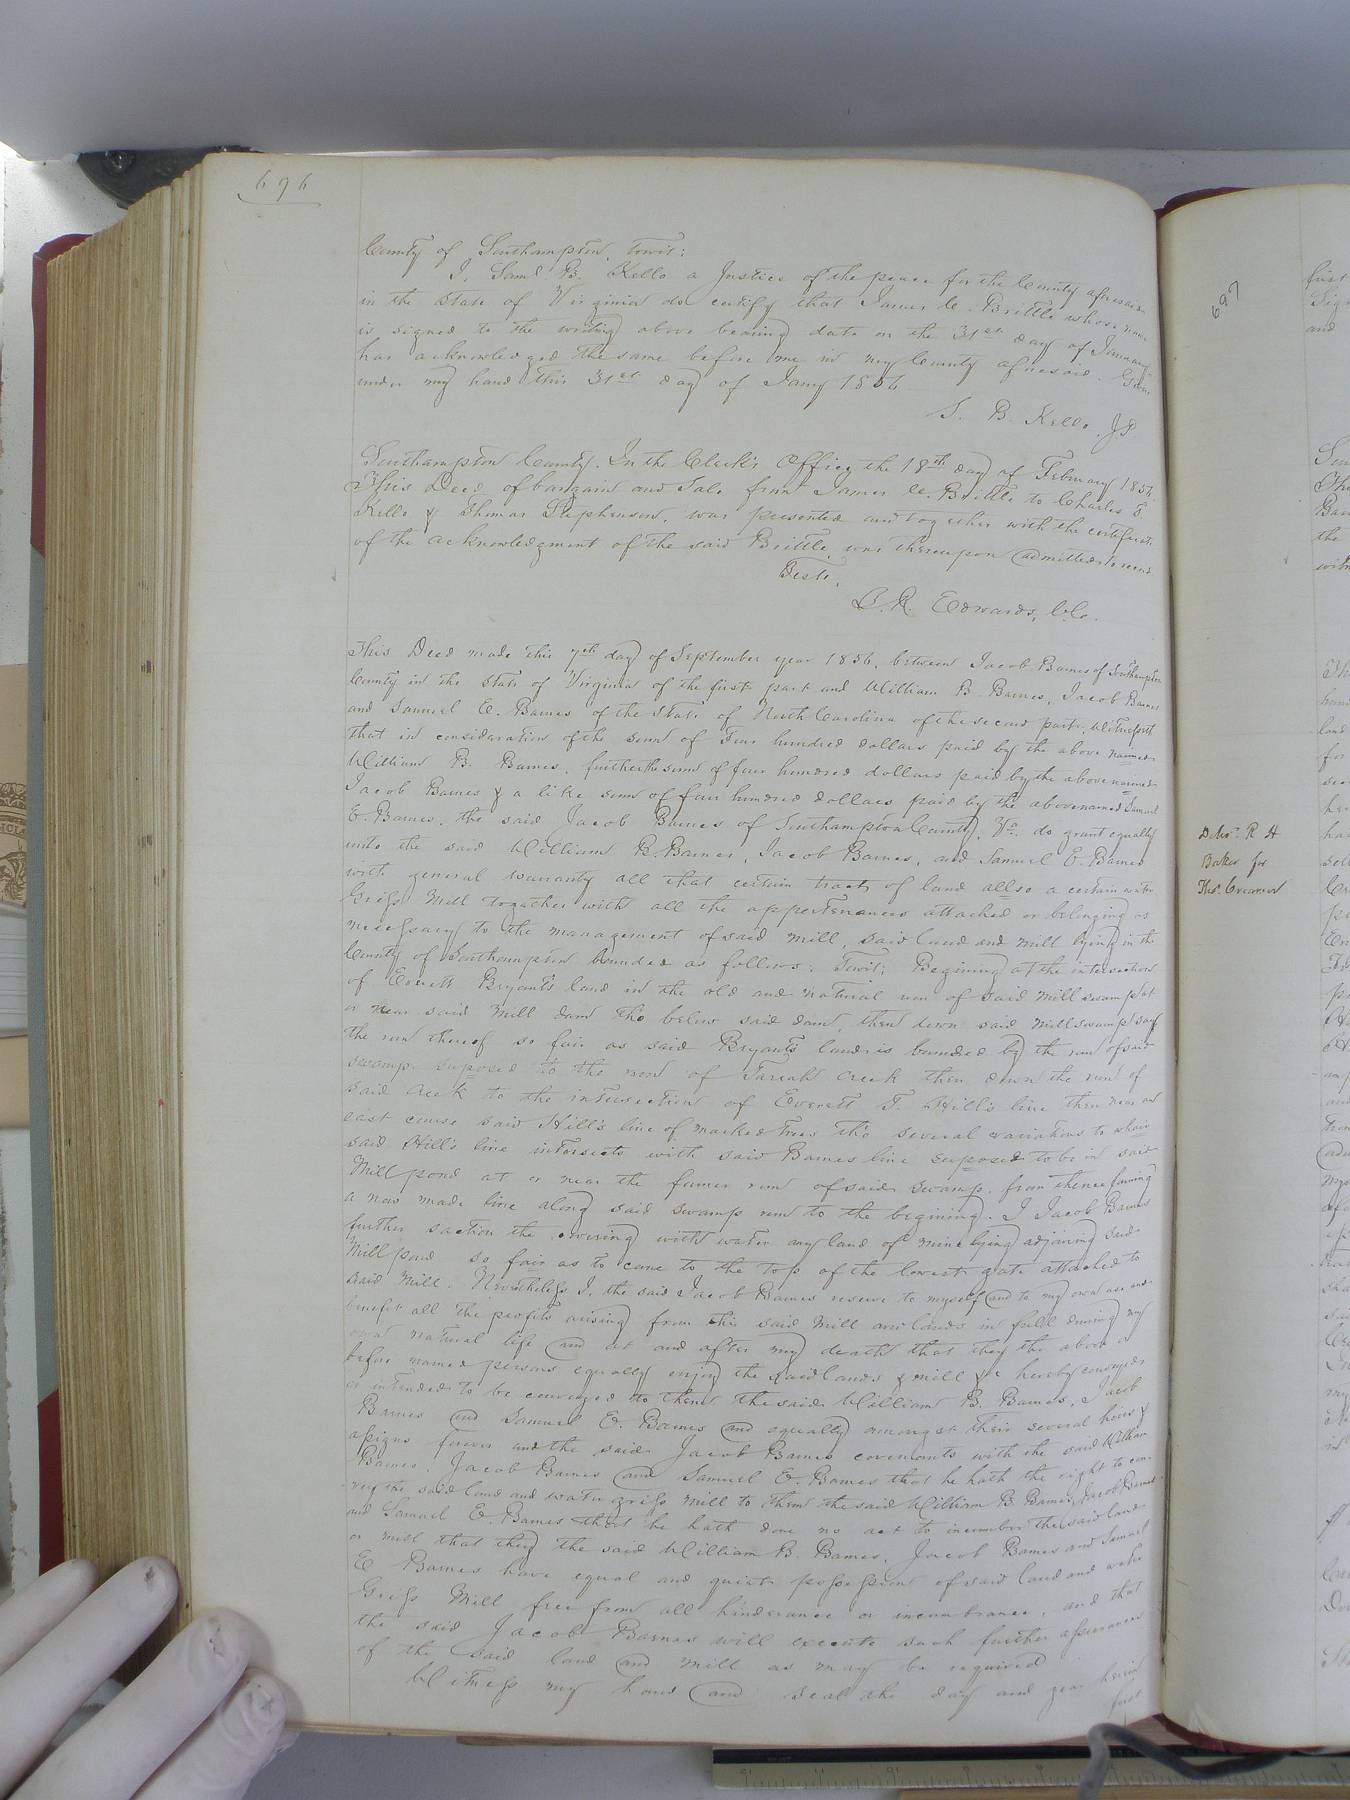 696
County of Southampton, towit:
I, Saml B. Kello a Justice of the peace for the County aforesaid
in the State of Virginia do certify that James W. Brittle whose name
is signed to the writing above bearing date on the 31st day of January
has acknowledged the same before me in my County aforesaid. Given
under my hand this 31st day of Jany 1856
S. B. Kello. JP.
Southampton County. In the Clerk's Office the 18th day of February 1856
This Deed of bargain and Sale from James W. Brittle to Charles E
Kello & Thomas Stephenson, was presented and together with the certificate
of the acknowledgment of the said Brittle, was thereupon admitted to record
Teste,
L. R. Edwards, C.C.
This Deed made this 7th day of September year 1856, between Jacob Barnes of Southampton
County in the State of Virginia of the first part and William B. Barnes, Jacob Barnes
and Samuel E. Barnes of the State of North Carolina of the second part. Witnesseth
that in consideration of the sum of Four hundred dollars paid by the above named
William B. Barnes, further the sum of four hundred dollars paid by the above named
Jacob Barnes & a like sum of four hundred dollars paid by the above named Samuel
E. Barnes, the said Jacob Barnes of Southampton County, Va. do grant equally
unto the said William B. Barnes, Jacob Barnes, and Samuel E. Barnes
with general warranty all that certain tract of land allso a certain water
Griss Mill together with all the appertenances attached or belonging as
necessary to the management of said mill, said land and mill lying in the
County of Southampton bounded as follows: Towit; Begining at the intersection
of Everett Bryant's land in the old and natural run of said mill swamp at
or near said mill dam tho below said dam, then down said mill swamp say
the run thereof so fair as said Bryants land is bounded by the run of said
swamp suposed to the run of Tarrah Creek then down the run of
said creek to the intersection of Everett T. Hill's line then near an
east course said Hill's line of marked trees tho' several variations to whair
said Hill's line intersects with said Barnes line suposed to be in said
Mill pond at or near the former run of said swamp. from thence forming
a now made line along said swamp run to the begining. I Jacob Barnes
further saction the covering with water any land of mine lying adjoining said
Mill pond so fair as to come to the top of the lowest gate attached to
said mill. Nevertheless I, the said Jacob Barnes reserve to myself and to my own use and
benefit all the profits arising from this said mill and lands in full during my
own natural life and at and after my death that they the above or
before named persons equally enjoy the said lands & mill &c hereby conveyed
or intended to be conveyed to them the said William B. Barnes, Jacob
Barnes and Samuel E. Barnes and equally amongst their several heirs &
assigns forever and the said Jacob Barnes covenants with the said William
Barnes, Jacob Barnes and Samuel E. Barnes that he hath the right to con-
vey the said land and water griss mill to them the said William B. Barnes, Jacob Barnes
and Samuel E Barnes that he hath done no act to incumber the said land
or mill that they the said William B. Barnes, Jacob Barnes and Samuel
E Barnes have equal and quiet possession of said land and water
Griss Mill free from all hinderance or incumbrance, and that
the said Jacob Barnes will execute such further assurances
of the said land and mill as may be required
Witness my hand and seal the day and year herein
first
697
Dld. R H
Baker for
Ths. Creamer